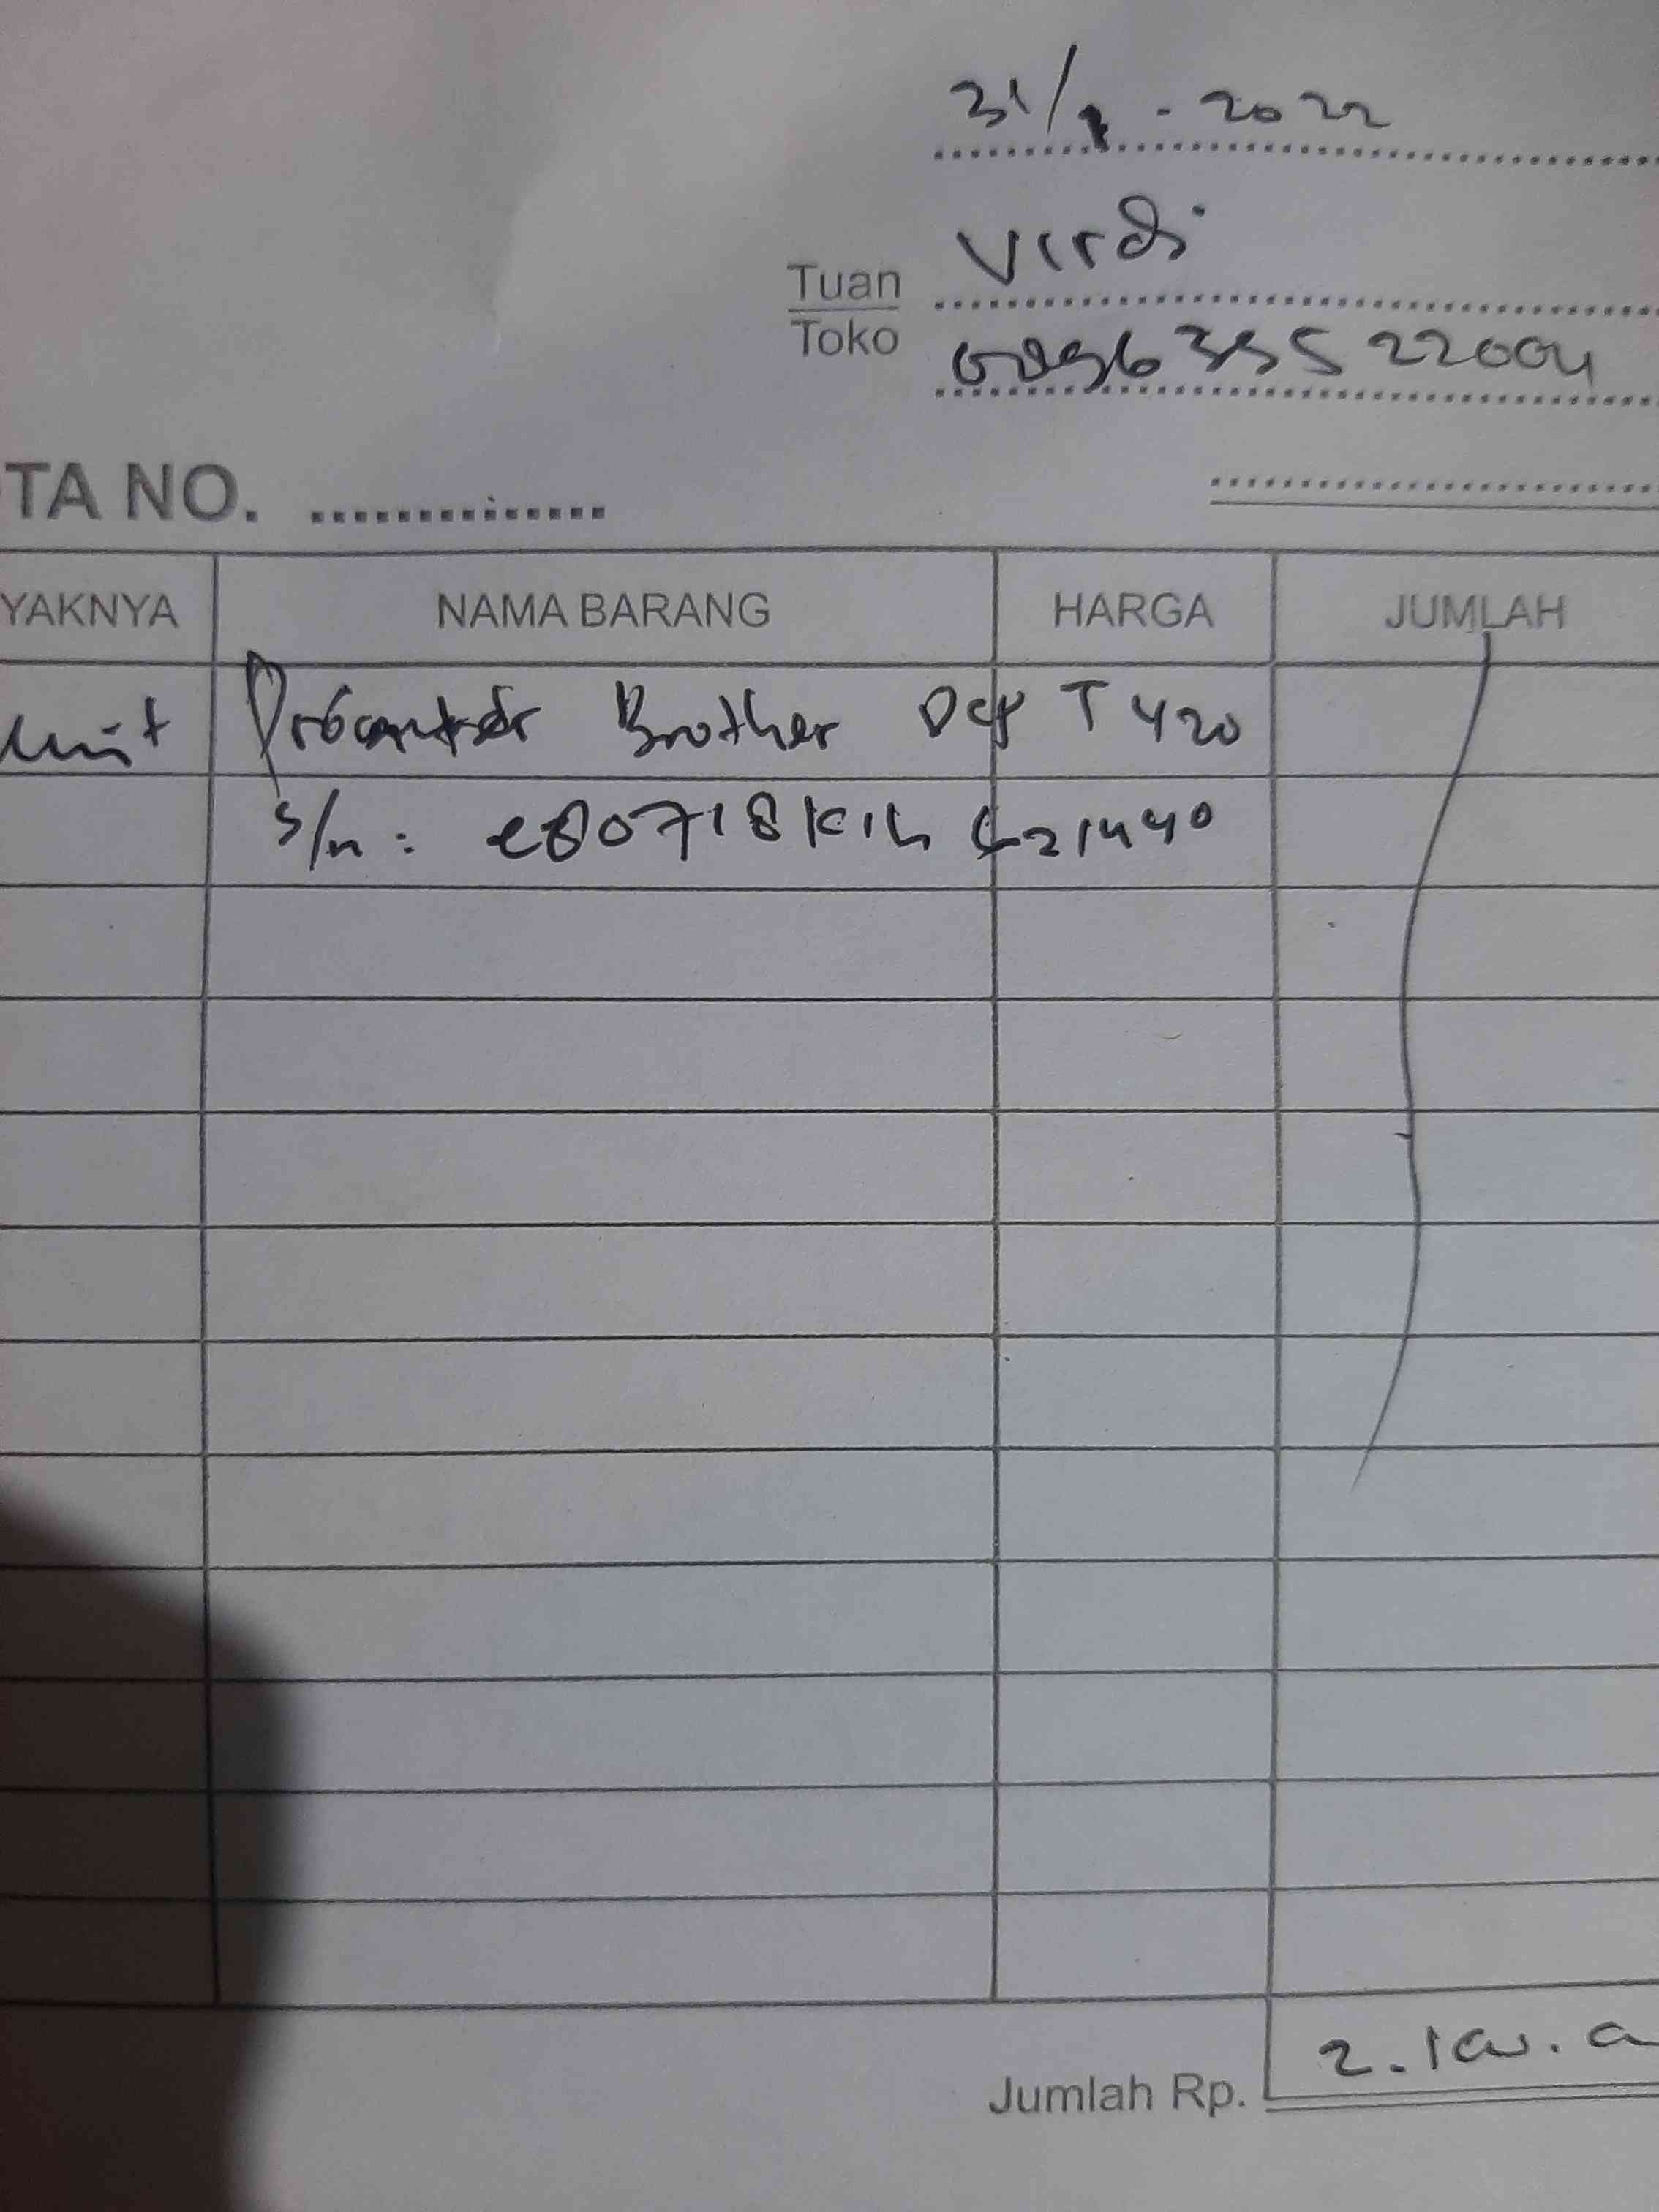 31/1 - 2022
Virdi
Tuan
Toko
089635522004
TA NO. ...............
YAKNYA NAMA BARANG HARGA JUMLAH
unit Brother Dcp T420
S/n : e80718K1h 421440
Jumlah Rp. 2.100.0